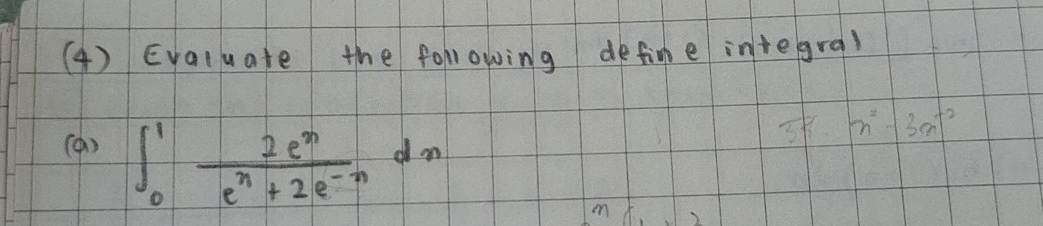 (4) Evaluate the following define integral
(a) ∫₀¹ 2eⁿ / (eⁿ + 2e⁻ⁿ) dn